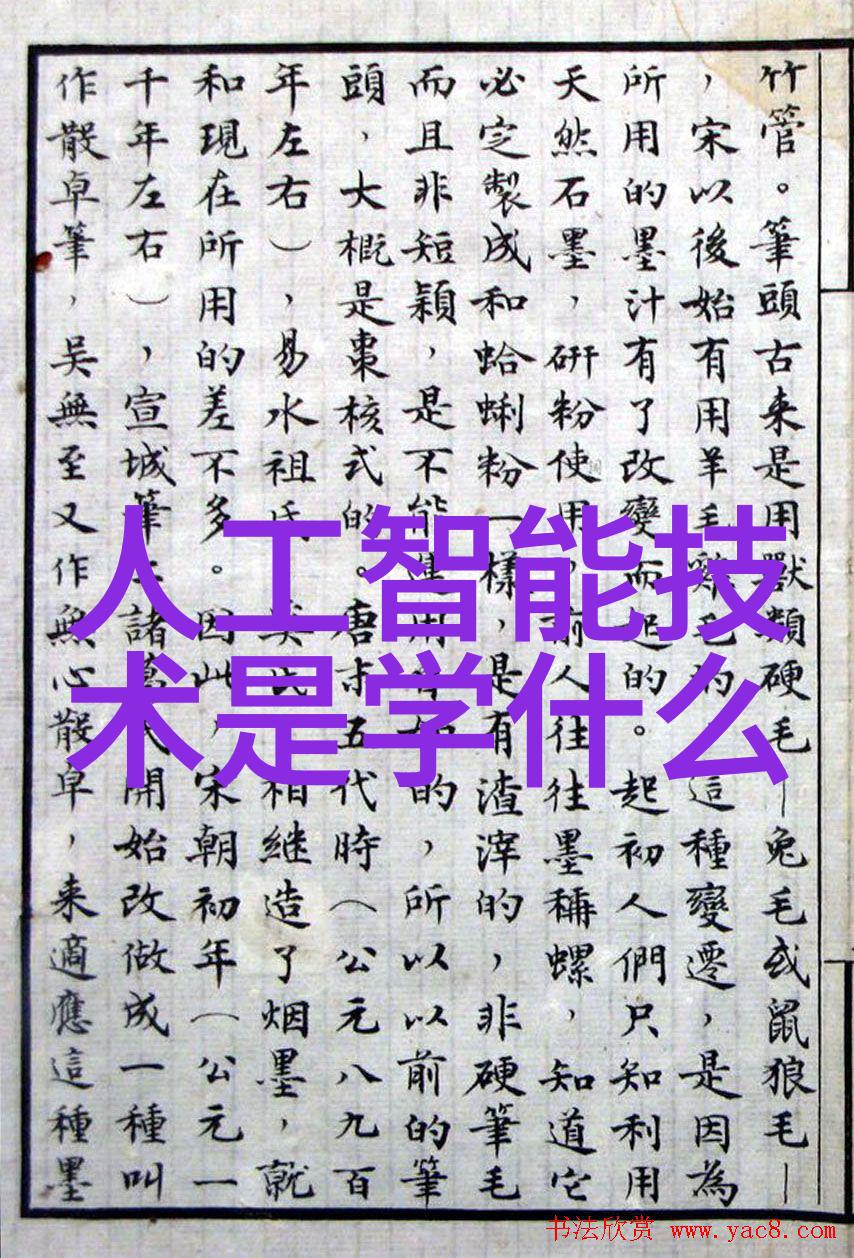 竹管。筆頭古来是用獸類硬毛—兔毛或鼠狼毛—
，宋以後始有用羊毛雞毛的。這種變遷，是因為
所用的墨汁有了改變而起的。起初人們只知利用
天然石墨，研粉使用，前人往往墨稱螺，知道它
必定製成和蛤蜊粉一樣，是有渣滓的，非硬筆毛
而且非短穎，是不能運用自如的，所以以前的筆
頭，大概是棗核式的。唐末五代時（公元八九百
年左右），易水祖氏奚氏相継造了烟墨，就
和現在所用的差不多。因此，宋朝初年（公元一
千年左右），宣城筆工諸葛氏開始改做成一種叫
作散卓筆，吳無至又作無心散卓，来適應這種墨
人工智能技
术是学什么
书法欣赏 www.yac8.com